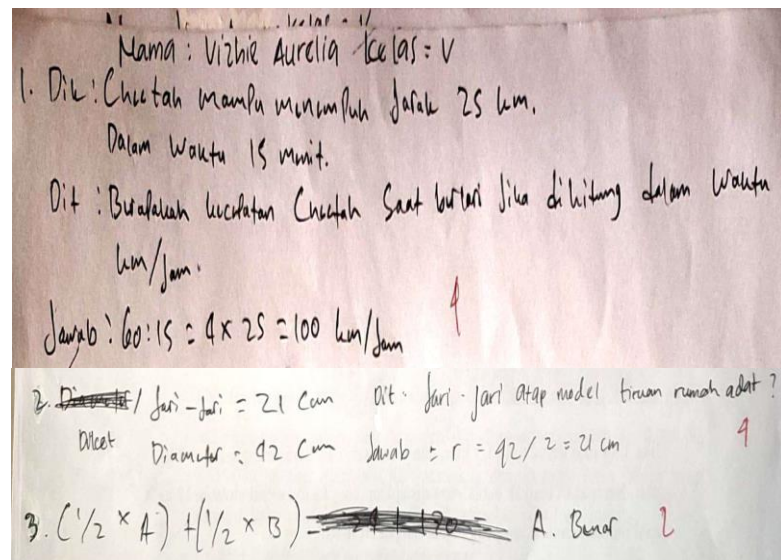 Nama : Vizhie Aurelia Kelas = V
1. Dik : Cheetah mampu menempuh Jarak 25 km.
Dalam waktu 15 menit.
Dit : Berapakah kecepatan Cheetah Saat berlari Jika dihitung dalam waktu
km/Jam.
Jawab : 60:15 = 4 x 25 = 100 km/Jam
4
2. / Jari-Jari = 21 Cm Dit : Jari-Jari atap model tiruan rumah adat ?
Diket Diameter = 42 Cm Jawab = r = 42/2 = 21 cm
4
3. (1/2 x A) + (1/2 x B) = A. Benar 2